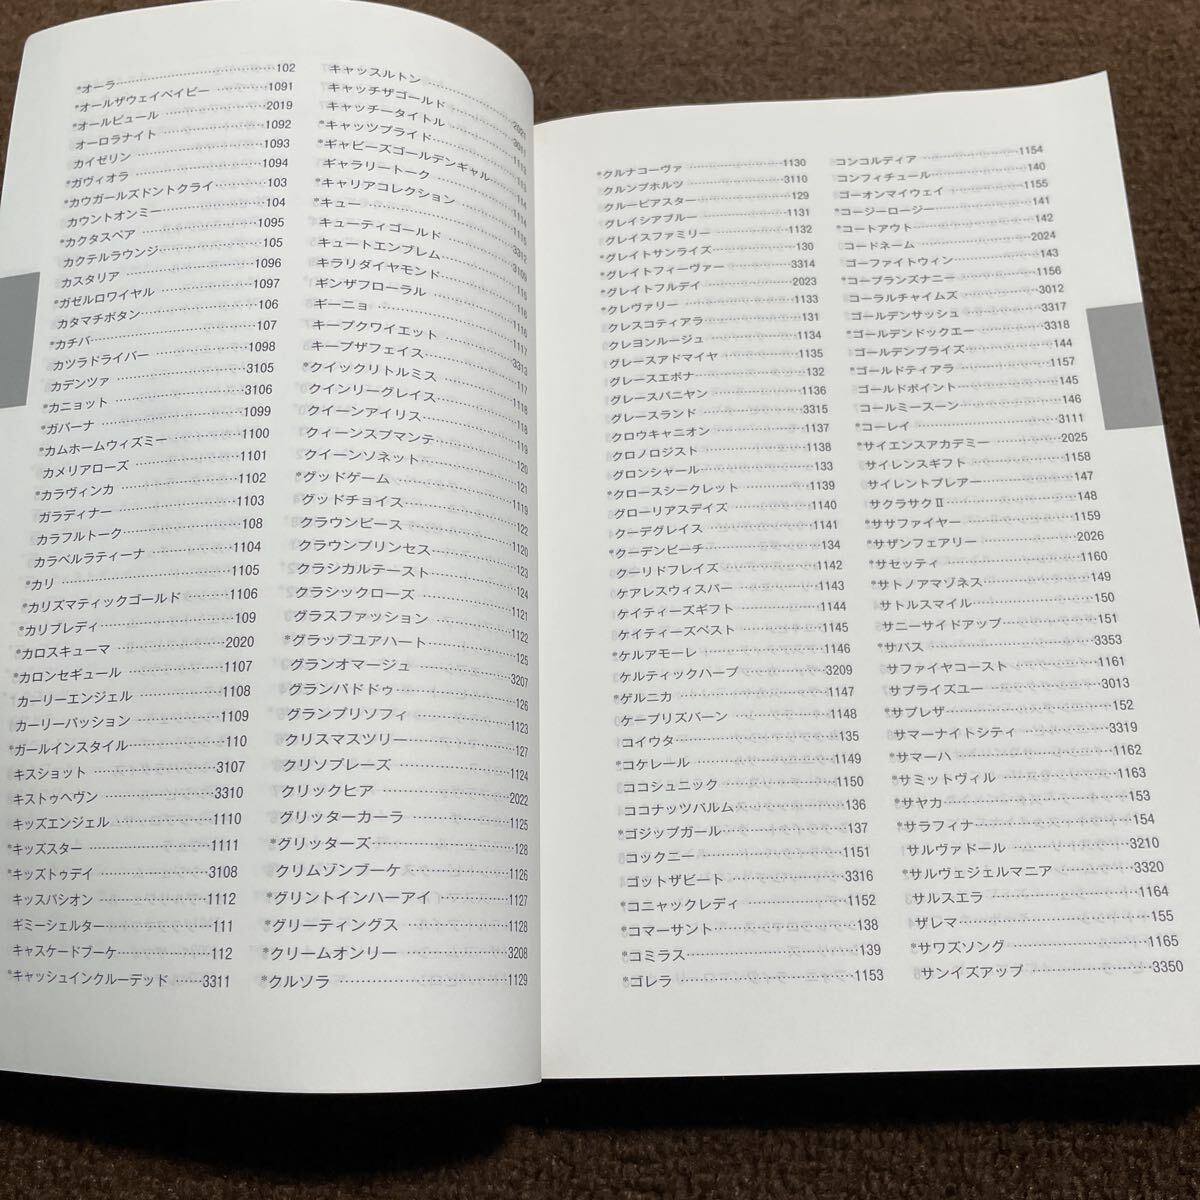 *オーラ……102
*オールザウェイベイビー……1091
*オールビュール……2019
オーロラナイト……1092
カイゼリン……1093
*ガヴィオラ……1094
*カウガールズドントクライ……103
カウントオンミー……104
*カクタスペア……1095
カクテルラウンジ……105
カスタリア……1096
*ガゼルロワイヤル……1097
カタマチボタン……106
*カチバ……107
カツラドライバー……1098
カデンツァ……3105
*カニョット……3106
*ガバーナ……1099
*カムホームウィズミー……1100
カメリアローズ……1101
*カラヴィンカ……1102
ガラディナー……1103
カラフルトーク……108
カラベルラティーナ……1104
*カリ……1105
*カリズマティックゴールド……1106
*カリブレディ……109
*カロスキューマ……2020
*カロンセギュール……1107
カーリーエンジェル……1108
カーリーパッション……1109
*ガールインスタイル……110
キスショット……3107
キストゥヘヴン……3310
キッズエンジェル……1110
*キッズスター……1111
*キッズトゥデイ……3108
キッスパシオン……1112
ギミーシェルター……111
キャスケードブーケ……112
*キャッシュインクルーデッド……3311
キャッスルトン……2021
キャッチザゴールド
キャッチータイトル
*キャッツプライド
*キャビーズゴールデンギャル
ギャラリートーク……114
*キャリアコレクション
*キュー
キューティゴールド……3312
キュートエンブレム……3109
キラリダイヤモンド
ギンザフローラル
ギーニョ……116
キープクワイエット……1117
キープザフェイス……3313
*クイックリトルミス……117
クインリーグレイス……1118
クイーンアイリス……118
クィーンスプマンテ……119
クイーンソネット……120
*グッドゲーム……121
グッドチョイス……1119
クラウンピース……122
クラウンプリンセス……1120
クラシカルテースト……123
クラシックローズ……124
グラスファッション……1121
*グラップユアハート……1122
グランオマージュ……125
グランパドドゥ……3207
グランプリソフィ……126
クリスマスツリー……1123
クリソプレーズ……127
クリックヒア……1124
グリッターカーラ……2022
*グリッターズ……1125
クリムゾンブーケ……128
*グリントインハーアイ……1126
*グリーティングス……1127
*クリームオンリー……1128
*クルソラ……3208
1129
*クルナコーヴァ……1130
クルンプホルツ……3110
クルーピアスター……129
グレイシアブルー……1131
グレイスファミリー……1132
*グレイトサンライズ……130
*グレイトフィーヴァー……3314
*グレイトフルデイ……2023
*クレヴァリー……1133
クレスコティアラ……131
クレヨンルージュ……1134
グレースアドマイヤ……1135
グレースエポナ……132
グレースバニヤン……1136
グレースランド……3315
クロウキャニオン……1137
クロノロジスト……1138
グロンシャール……133
*クロースシークレット……1139
グローリアスデイズ……1140
クーデグレイス……1141
*クーデンビーチ……134
クーリドフレイズ……1142
ケアレスウィスパー……1143
ケイティーズギフト……1144
ケイティーズベスト……1145
*ケルアモーレ……1146
ケルティックハープ……3209
*ゲルニカ……1147
ケープリズバーン……1148
コイウタ……135
*コケレール……1149
ココシュニック……1150
ココナッツパルム……136
*ゴジップガール……137
コックニー……1151
ゴットザビート……3316
*コニャックレディ……1152
*コマーサント……138
*コミラス……139
*ゴレラ……1153
コンコルディア……1154
コンフィチュール……140
ゴーオンマイウェイ……1155
*コージーロージー……141
*コートアウト……142
コードネーム……2024
ゴーファイトウィン……143
*コープランズナニー……1156
コーラルチャイムズ……3012
ゴールデンサッシュ……3317
*ゴールデンドックエー……3318
ゴールデンプライズ……144
*ゴールドティアラ……1157
ゴールドポイント……145
コールミースーン……146
*コーレイ……3111
*サイエンスアカデミー……2025
サイレンスギフト……1158
サイレントプレアー……147
サクラサクⅡ……148
*ササファイヤー……1159
*サザンフェアリー……2026
*サセッティ……1160
サトノアマゾネス……149
サトルスマイル……150
サニーサイドアップ……151
*サバス……3353
サファイヤコースト……1161
サプライズユー……3013
*サプレザ……152
サマーナイトシティ……3319
*サマーハ……1162
*サミットヴィル……1163
*サヤカ……153
*サラフィナ……154
サルヴァドール……3210
*サルヴェジェルマニア……3320
サルスエラ……1164
ザレマ……155
*サワズソング……1165
サンイズアップ……3350